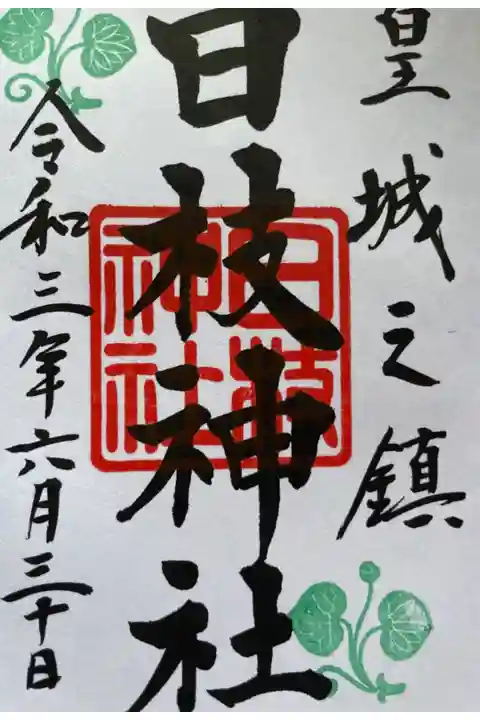 皇城之鎮
日枝神社
令和三年六月三十日
日枝
神社